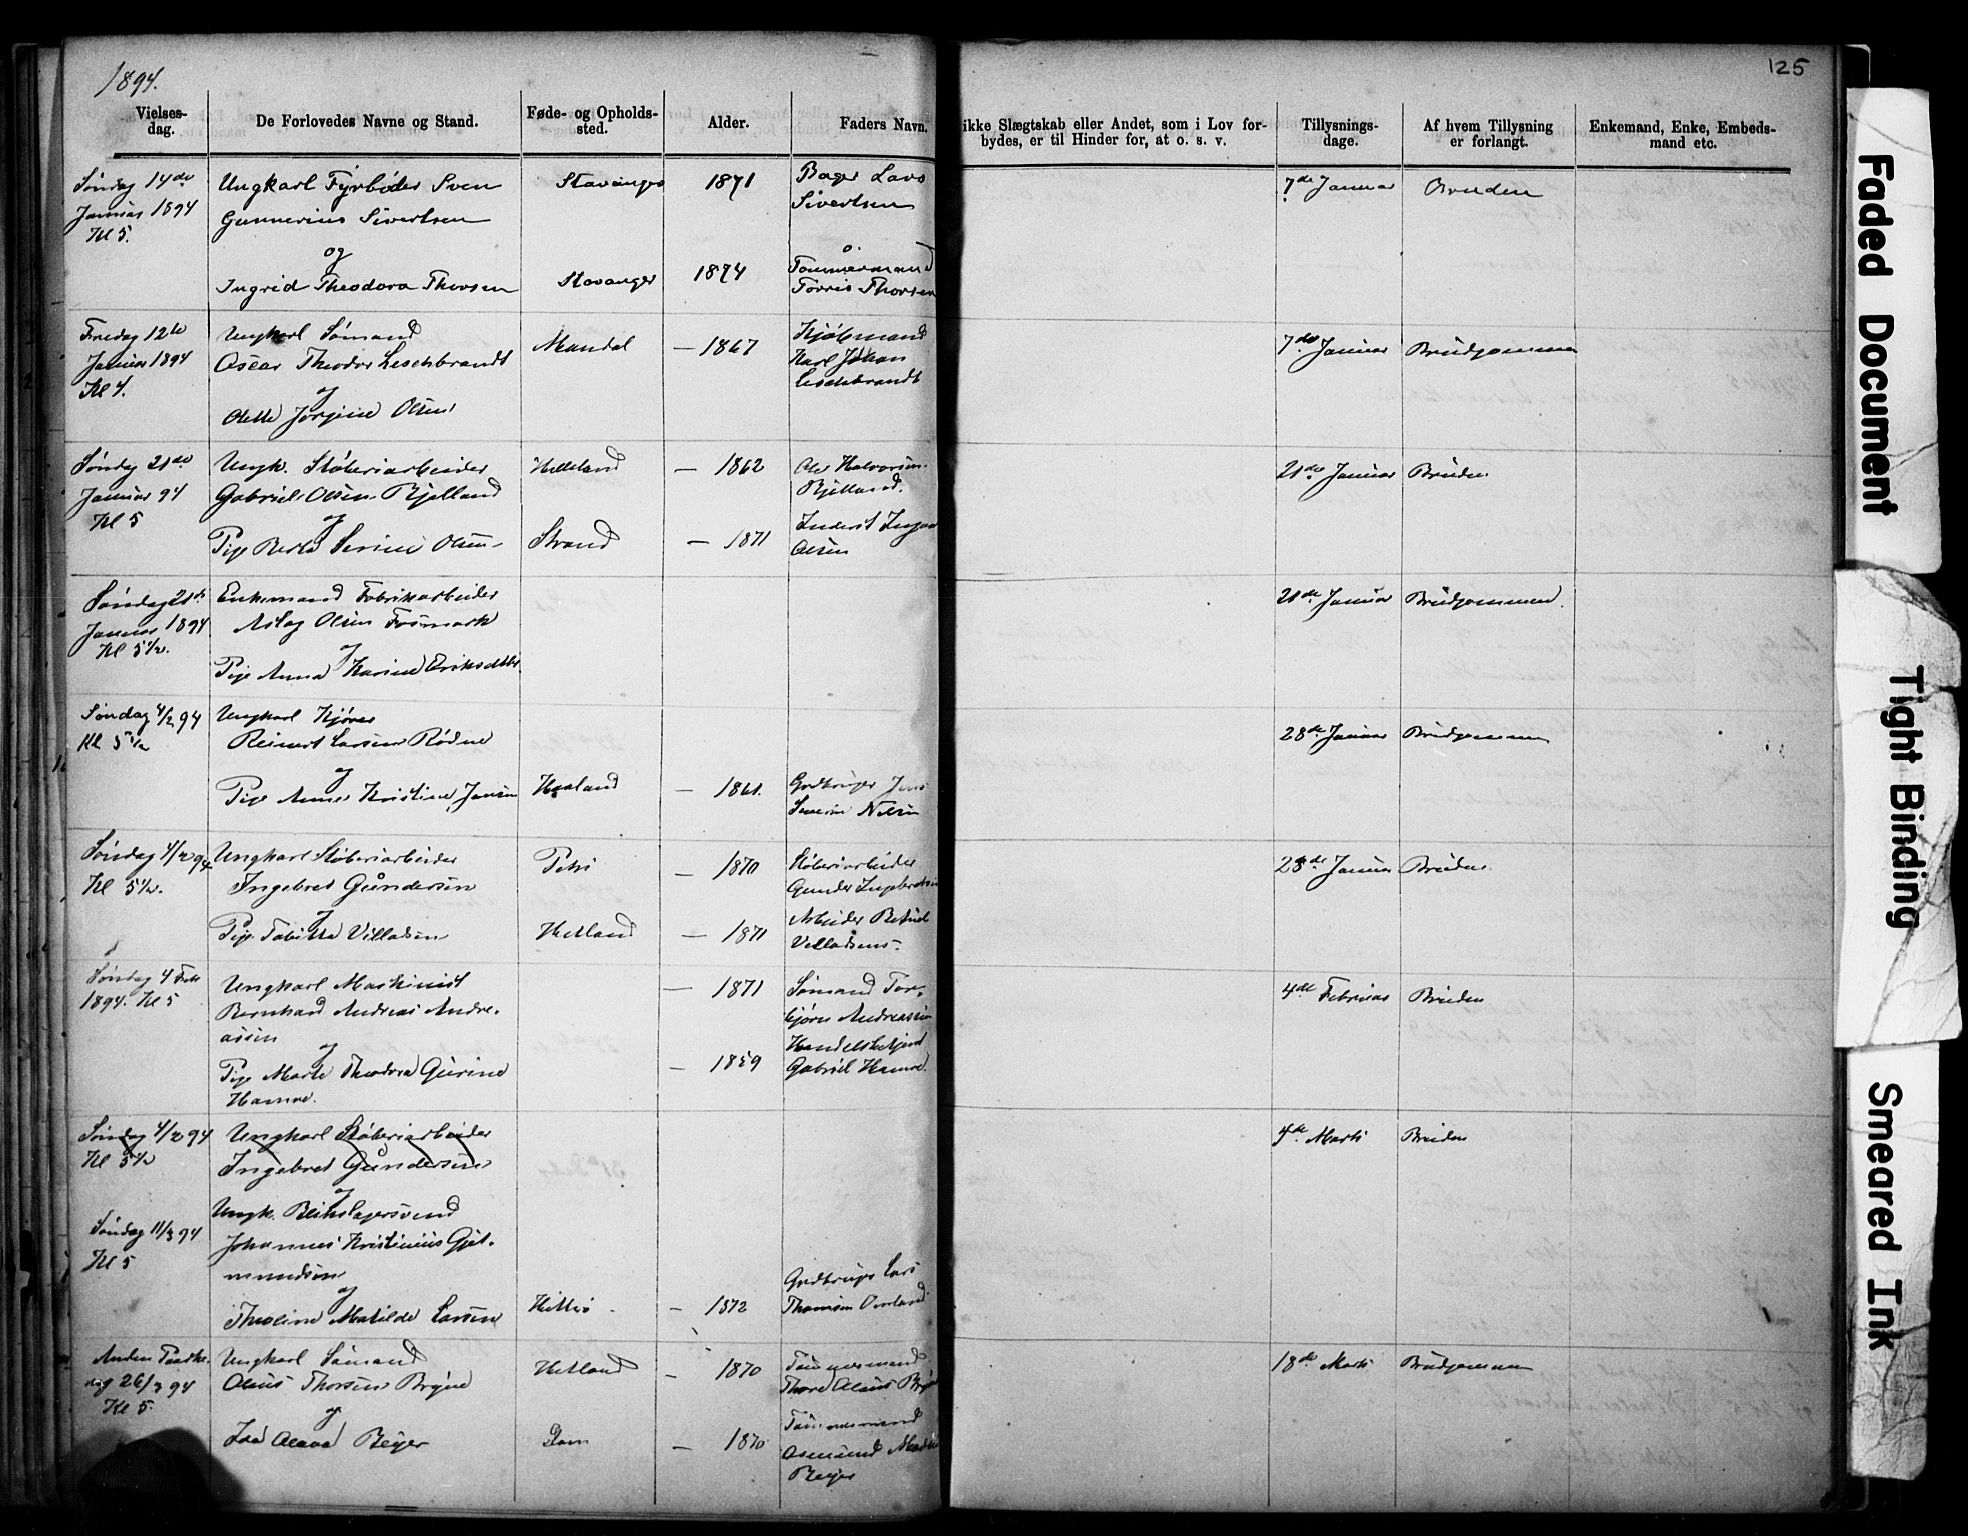 1894.
125
Vielses-
dag.
De Forlovedes Navne og Stand.
Føde- og Opholds-
sted.
Alder.
Faders Navn.
ikke Slægtskab eller Andet, som i Lov for-
bydes, er til Hinder for, at o. s. v.
Tillysnings-
dage.
Af hvem Tillysning
er forlangt.
Enkemand, Enke, Embeds-
mand etc.
Søndag 14de
Januar 1894
Kl 5.
Ungkarl Fyrbøder Sven
Gunnerius Sivertsen
og
Ingrid Theodora Thorsen
Stavanger
Stavanger
1871
1874
Bager Lars
Sivertsen
Tømmermand
Torris Thorsen
7de Januar
Bruden
Fredag 12te
Januar 1894
Kl 4.
Ungkarl Sømand
Oscar Theodor Leschbrandt
og
Olette Jørgine Olsen
Mandal
— 1867
Kjøbmand
Karl Johan
Leschbrandt
7de Januar
Brudgommen
Søndag 21de
Januar 94
Kl 5
Ungk. Støberiarbeider
Gabriel Olsen Bjelland
og
Pige Berta Serine Olsen
Helleland
Strand
— 1862
— 1871
Ole Halvorsen
Bjelland.
Inderst
Olsen
21de Januar
Bruden
Søndag 21de
Januar 1894
Kl 5½.
Enkemand Fabrikarbeider
Aslag Olsen Fosmark
og
Pige Anna Karine Eriksdatter
21de Januar
Brudgommen.
Søndag 4/2 94
Kl 5½
Ungkarl Kjører
Reinert Larsen Rødne
og
Pige Anne Kristine Jensen
Haaland
— 1861.
Grdbruger Jens
Severin Nilsen
28de Januar
Brudgommen
Søndag 4/2 94
Kl 5½.
Ungkarl Støberiarbeider
Ingebret Gundersen
og
Pige Tabitta Villadsen
Petri
Hetland
— 1870
— 1871
Støberiarbeider
Gunder Ingebretsen
Arbeider
Villadsen
28de Januar
Bruden
Søndag 4 Feb
1894. Kl 5
Ungkarl Maskinist
Bernhard Andreas Andre-
assen
og
Pige Marte Theodora Gurine
Hamre.
— 1871
— 1859
Sømand Tor-
bjørn Andreassen
Handelsbetjent
Gabriel Hamre.
4de Februar
Bruden
Søndag 4/2 94
Kl 5½
Ungkarl Støberiarbeider
Ingebret Gundersen
og
Søndag 11/3 94
Kl 5
Ungk. Blikslagersvend
Johannes Kristinius Gjet-
mundsen
og
Theoline Matilde Larsen
Hitterø
— 1872
Grdbruger Lars
Thomsen
4de Marts
Bruden
Anden Paaske-
dag 26/3 94
Kl 5.
Ungkarl Sømand
Olaus Thorsen Bryne
og
Ida Olava Beyer
Hetland
Dom
— 1870
— 1870
Tømmermand
Thore Olaus Bryne
Tømmermand
Osmund
Beyer
18de Marts
Brudgommen
Faded Document
Tight Binding
Smeared Ink